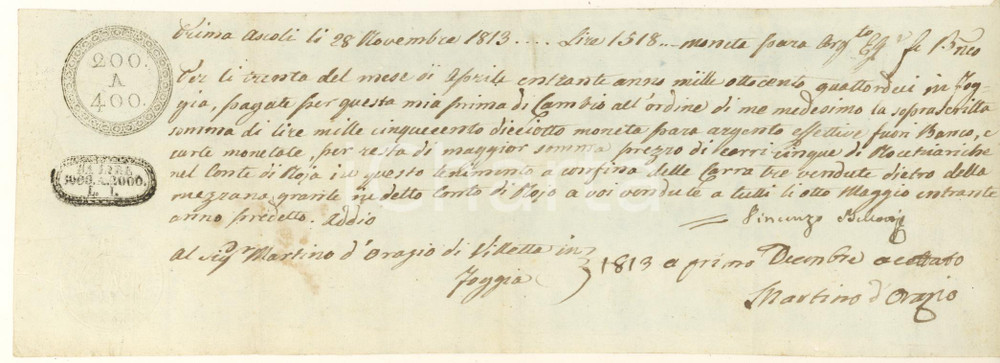 200.
A
400.
DA LIRE
1000. A. 2000.
L. 1.
Prima Ascoli li 28 Novembre 1813 .... Lire 1518 .. moneta para Arg.to
Per li trenta del mese di Aprile entrante anno mille ottocento quattordici in Fog-
gia, pagate per questa mia prima di Cambio all'ordine di me medesimo la sopradscritta
somma di lire mille cinquecento dieciotto moneta para argento effettive fuori Banco, e
carte monetate, per resta di maggior somma prezzo di carri cinque di
nel Conte di Noja in questo tenimento a confina delle Carra tre vendute dietro della
mezzana grande in detto Conte di Noja a voi vendute a tutti li otto Maggio entrante
anno predetto. Addio
Vincenzo
Al Sig.r Martino d'Orazio di Villetta in
Foggia
1813 a primo Decembre accettato
Martino d'Orazio
iCharta